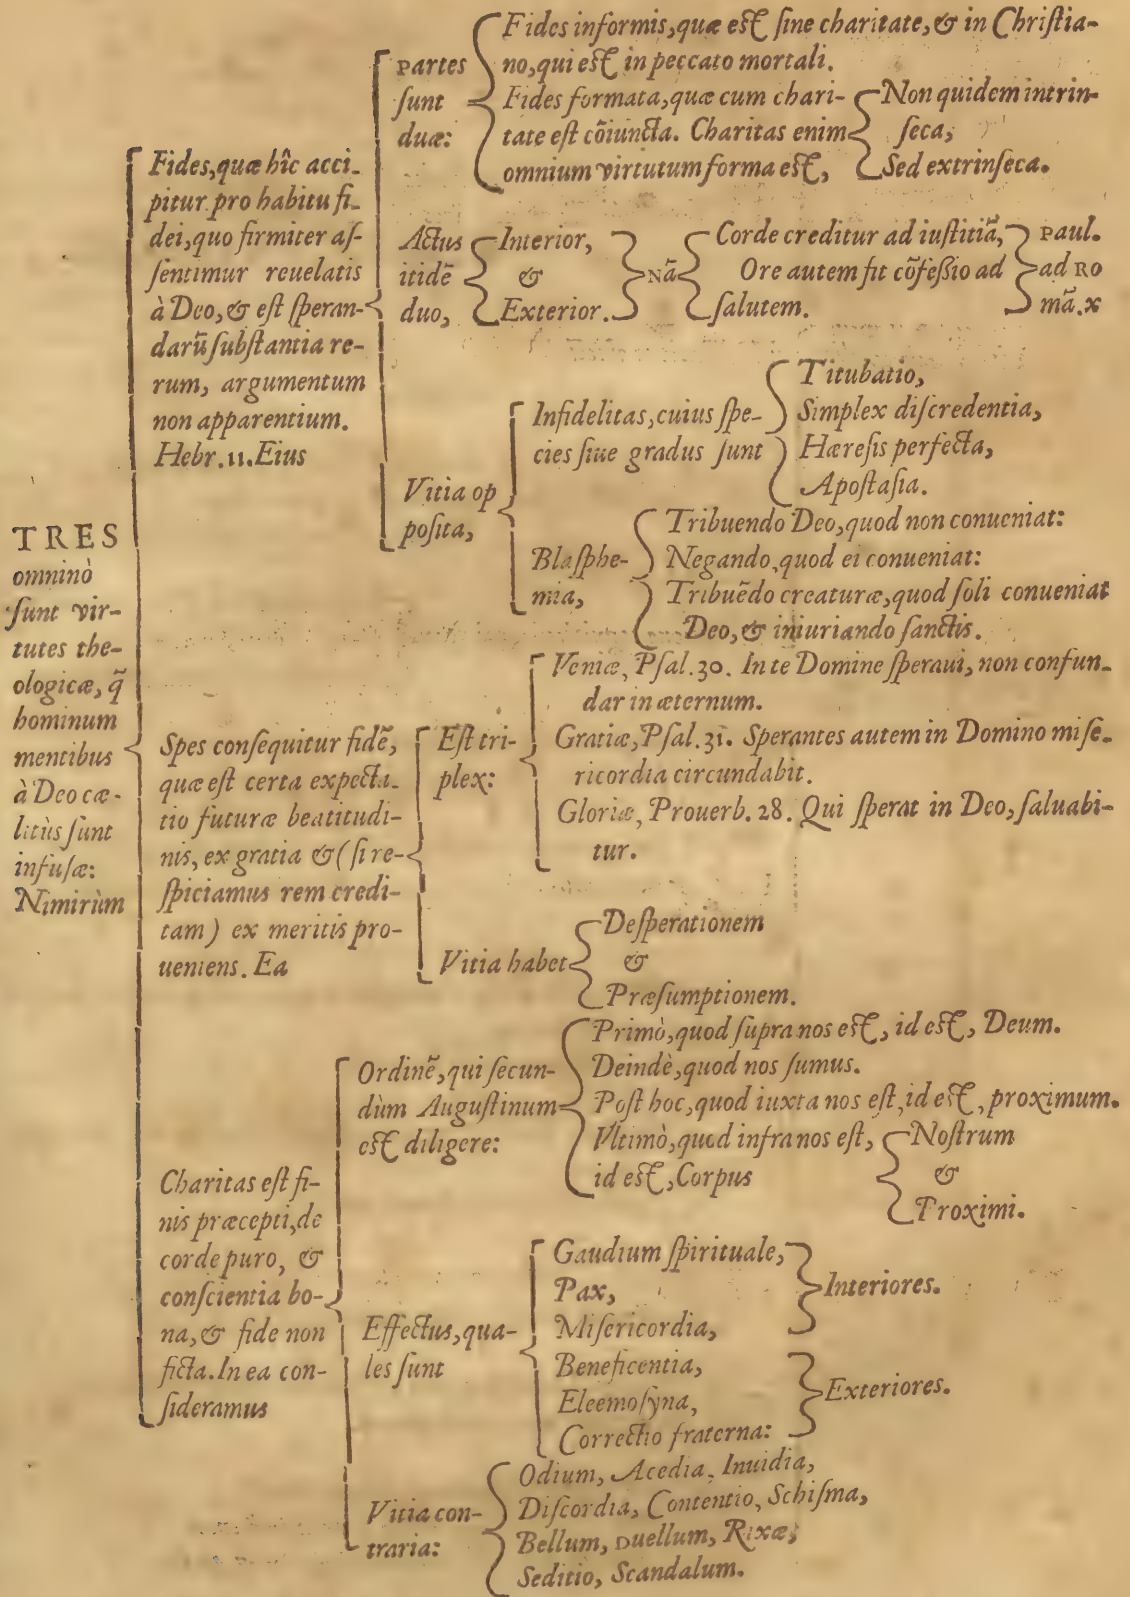 TRES
omninò
sunt vir-
tutes the-
ologicæ, q̃
hominum
mentibus
à Deo cæ-
litùs sunt
infusæ:
Nimirùm
Fides, quæ hîc acci-
pitur pro habitu fi-
dei, quo firmiter as-
sentimur reuelatis
à Deo, & est speran-
darũ substantia re-
rum, argumentum
non apparentium.
Hebr. 11. Eius
Partes
sunt
duæ:
Fides informis, quæ est sine charitate, & in Christia-
no, qui est in peccato mortali.
Fides formata, quæ cum chari-
tate est cõiuncta. Charitas enim
omnium virtutum forma est,
Non quidem intrin-
seca,
Sed extrinseca.
Actus
itidẽ
duo,
Interior,
&
Exterior.
Nã
Corde creditur ad iustitiã,
Ore autem fit cõfessio ad
salutem.
Paul.
ad Ro
mã. x
Vitia op
posita,
Infidelitas, cuius spe-
cies siue gradus sunt
Titubatio,
Simplex discredentia,
Hæresis perfecta,
Apostasia.
Blasphe-
mia,
Tribuendo Deo, quod non conueniat:
Negando, quod ei conueniat:
Tribuẽdo creaturæ, quod soli conueniat
Deo, & iniuriando sanctis.
Spes consequitur fidẽ,
quæ est certa expecta-
tio futuræ beatitudi-
nis, ex gratia & (si re-
spiciamus rem credi-
tam) ex meritis pro-
ueniens. Ea
Est tri-
plex:
Veniæ, Psal. 30. In te Domine speraui, non confun-
dar in æternum.
Gratiæ, Psal. 31. Sperantes autem in Domino mise-
ricordia circundabit.
Gloriæ, Prouerb. 28. Qui sperat in Deo, saluabi-
tur.
Vitia habet
Desperationem
&
Præsumptionem.
Charitas est fi-
nis præcepti, de
corde puro, &
conscientia bo-
na, & fide non
ficta. In ea con-
sideramus
Ordinẽ, qui secun-
dùm Augustinum
est diligere:
Primò, quod supra nos est, id est, Deum.
Deindè, quod nos sumus.
Post hoc, quod iuxta nos est, id est, proximum.
Vltimò, quod infra nos est,
id est, Corpus
Nostrum
&
Proximi.
Effectus, qua-
les sunt
Gaudium spirituale,
Pax,
Misericordia,
Interiores.
Beneficentia,
Eleemosyna,
Correctio fraterna:
Exteriores.
Vitia con-
traria:
Odium, Acedia, Inuidia,
Discordia, Contentio, Schisma,
Bellum, Duellum, Rixæ,
Seditio, Scandalum.